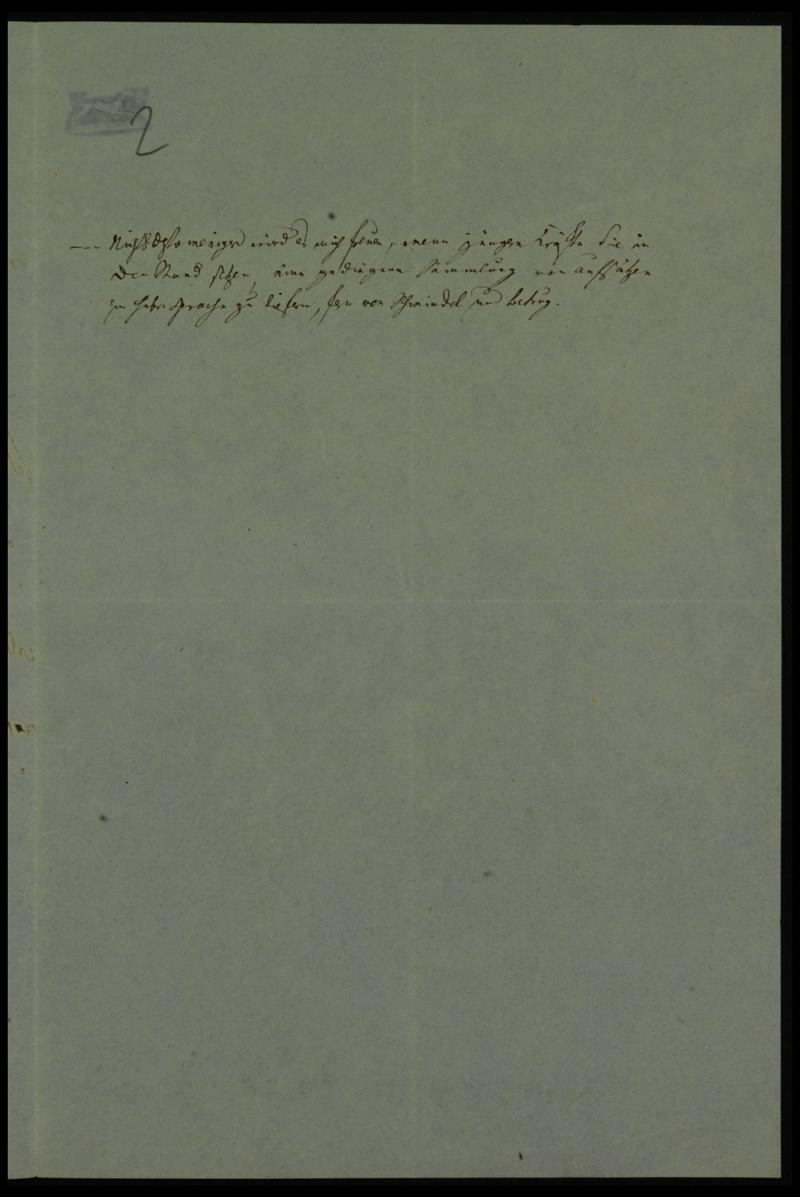 2
— Nichtsdestoweniger wird es mich freuen, wenn jüngere Kräfte Sie in
den Stand setzen, eine gediegene Sammlung von Aufsätzen
in hebr. Sprache zu liefern, fern von Schwindel und Betrug.